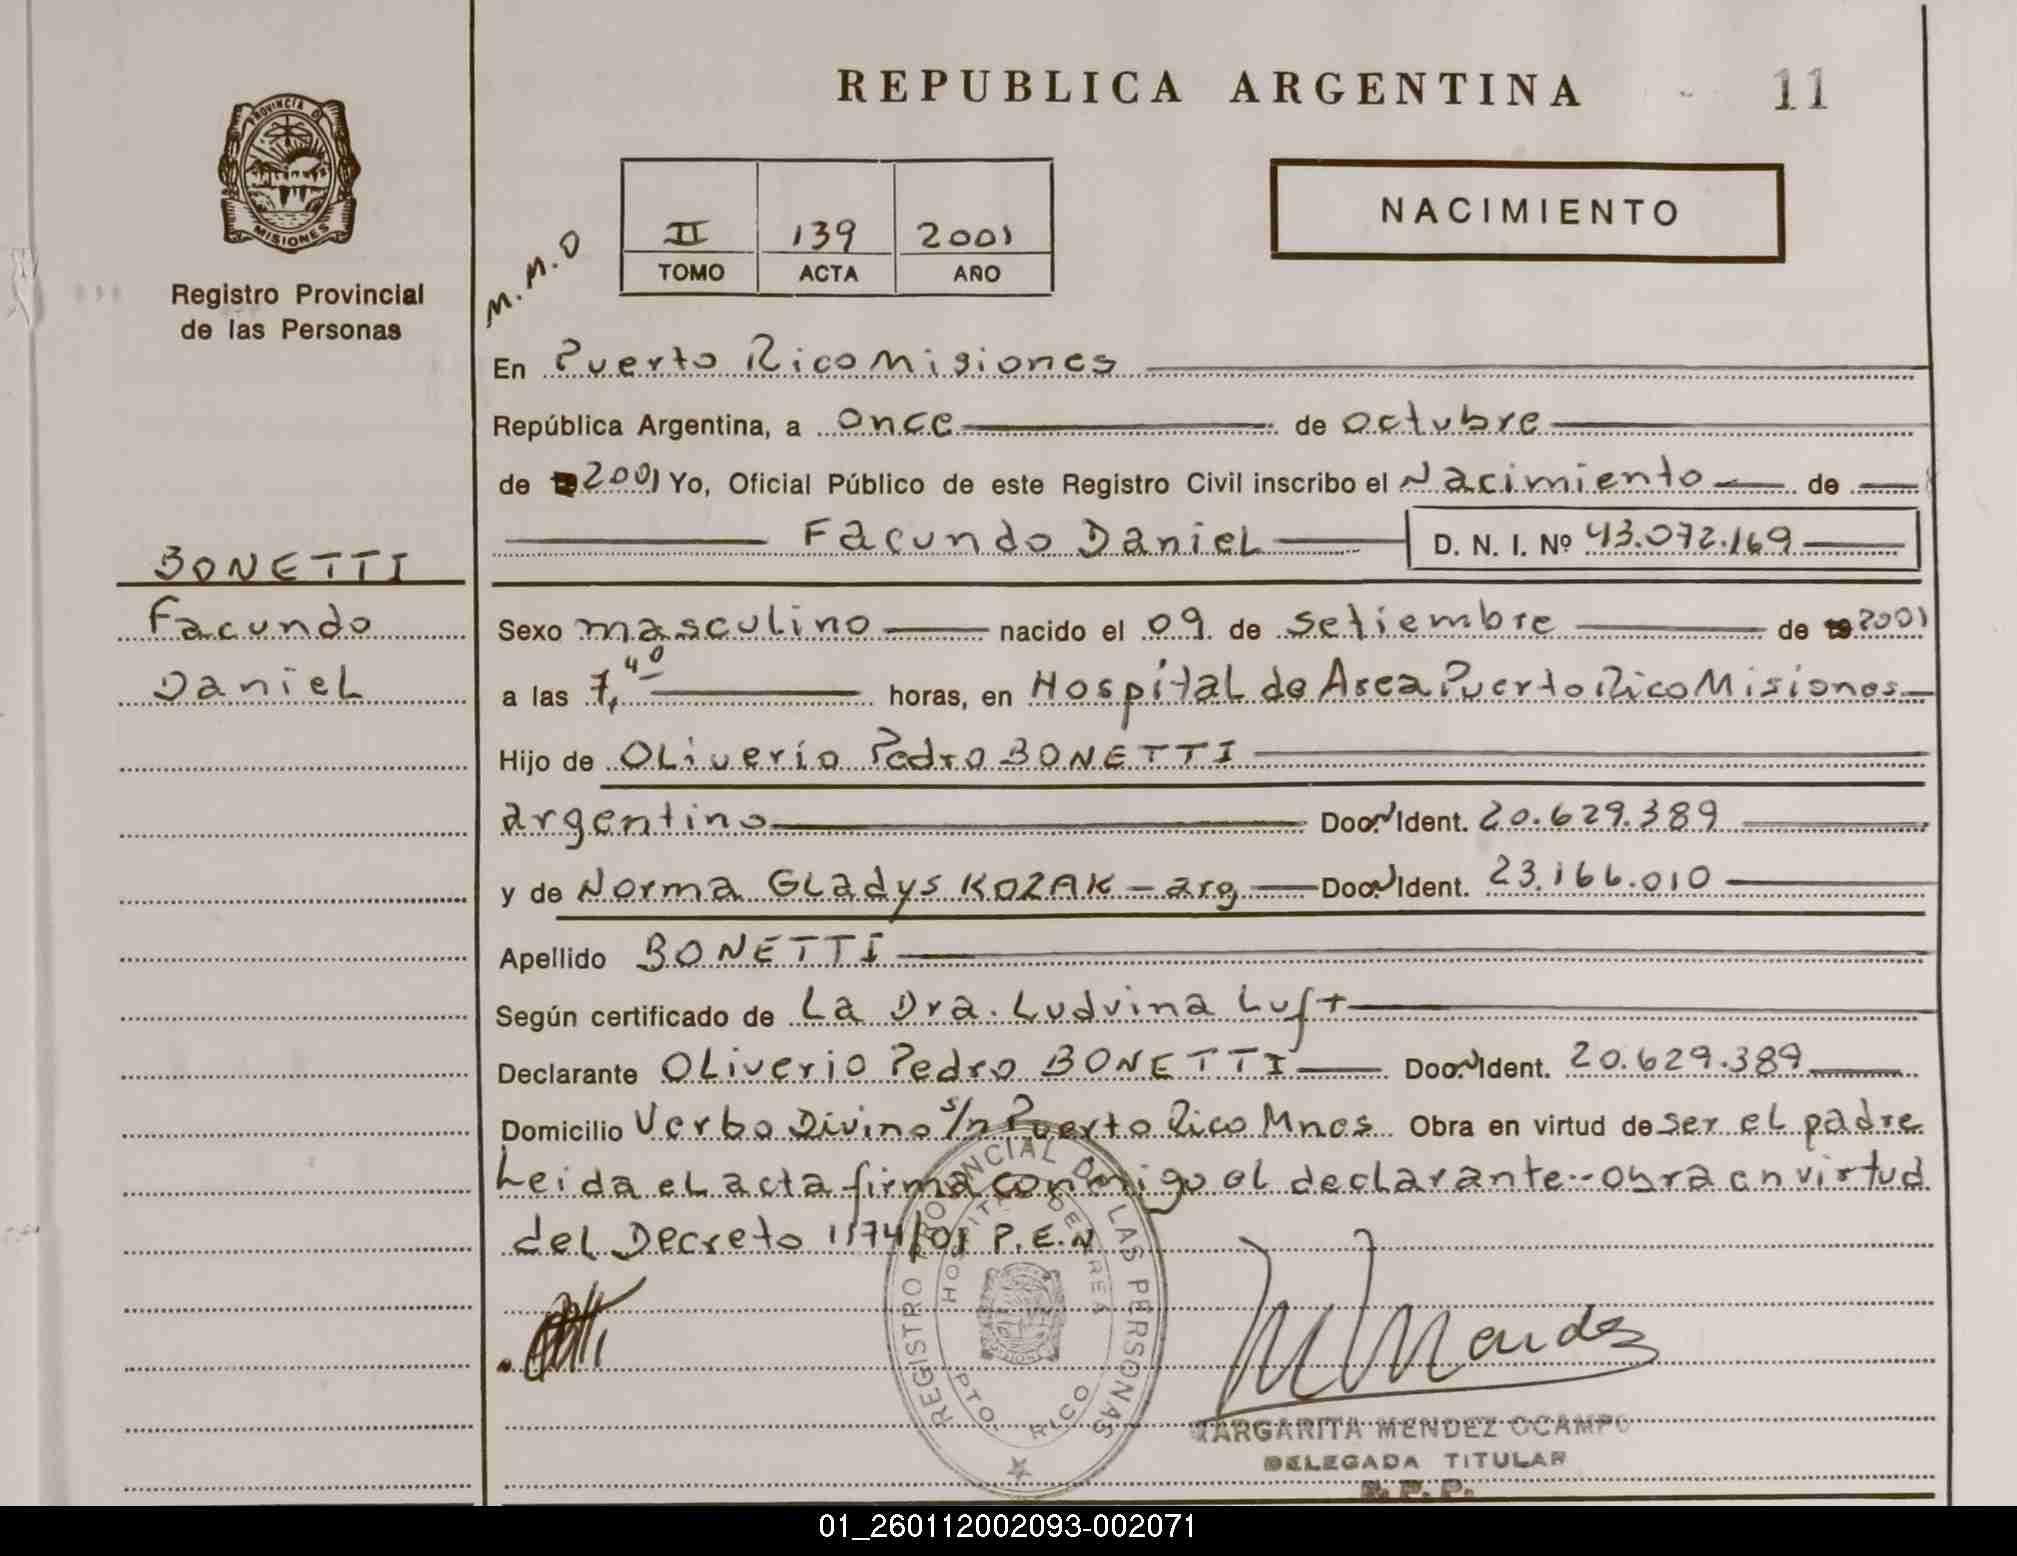 REPUBLICA ARGENTINA
11
PROVINCIA DE
MISIONES
Registro Provincial
de las Personas
M.M.O
II 139 2001
TOMO ACTA AÑO
NACIMIENTO
En Puerto Rico Misiones
República Argentina, a once de octubre
de 2001 Yo, Oficial Público de este Registro Civil inscribo el Nacimiento de
Facundo Daniel D. N. I. Nº 43.072.169
BONETTI
Facundo
Daniel
Sexo masculino nacido el 09 de setiembre de 2001
a las 7,40 horas, en Hospital de Area Puerto Rico Misiones
Hijo de Oliverio Pedro BONETTI
argentino Doc. N Ident. 20.629.389
y de Norma Gladys KOZAK - arg Doc. N Ident. 23.166.010
Apellido BONETTI
Según certificado de La Dra. Ludvina Luft
Declarante Oliverio Pedro BONETTI Doc. N Ident. 20.629.389
Domicilio Verbo Divino s/n Puerto Rico Mnes Obra en virtud de ser el padre
Leida el acta firma conmigo el declarante-- obra en virtud
del Decreto 1174/01 P.E.N
REGISTRO PROVINCIAL DE LAS PERSONAS
HOSPITAL DE AREA
PTO. RICO
M Mendez
MARGARITA MENDEZ OCAMPO
DELEGADA TITULAR
R. P. P.
01_260112002093-002071